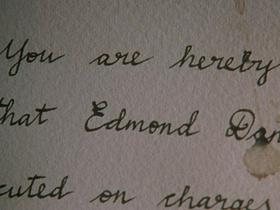 You are hereby
that Edmond Dan
cuted on charges